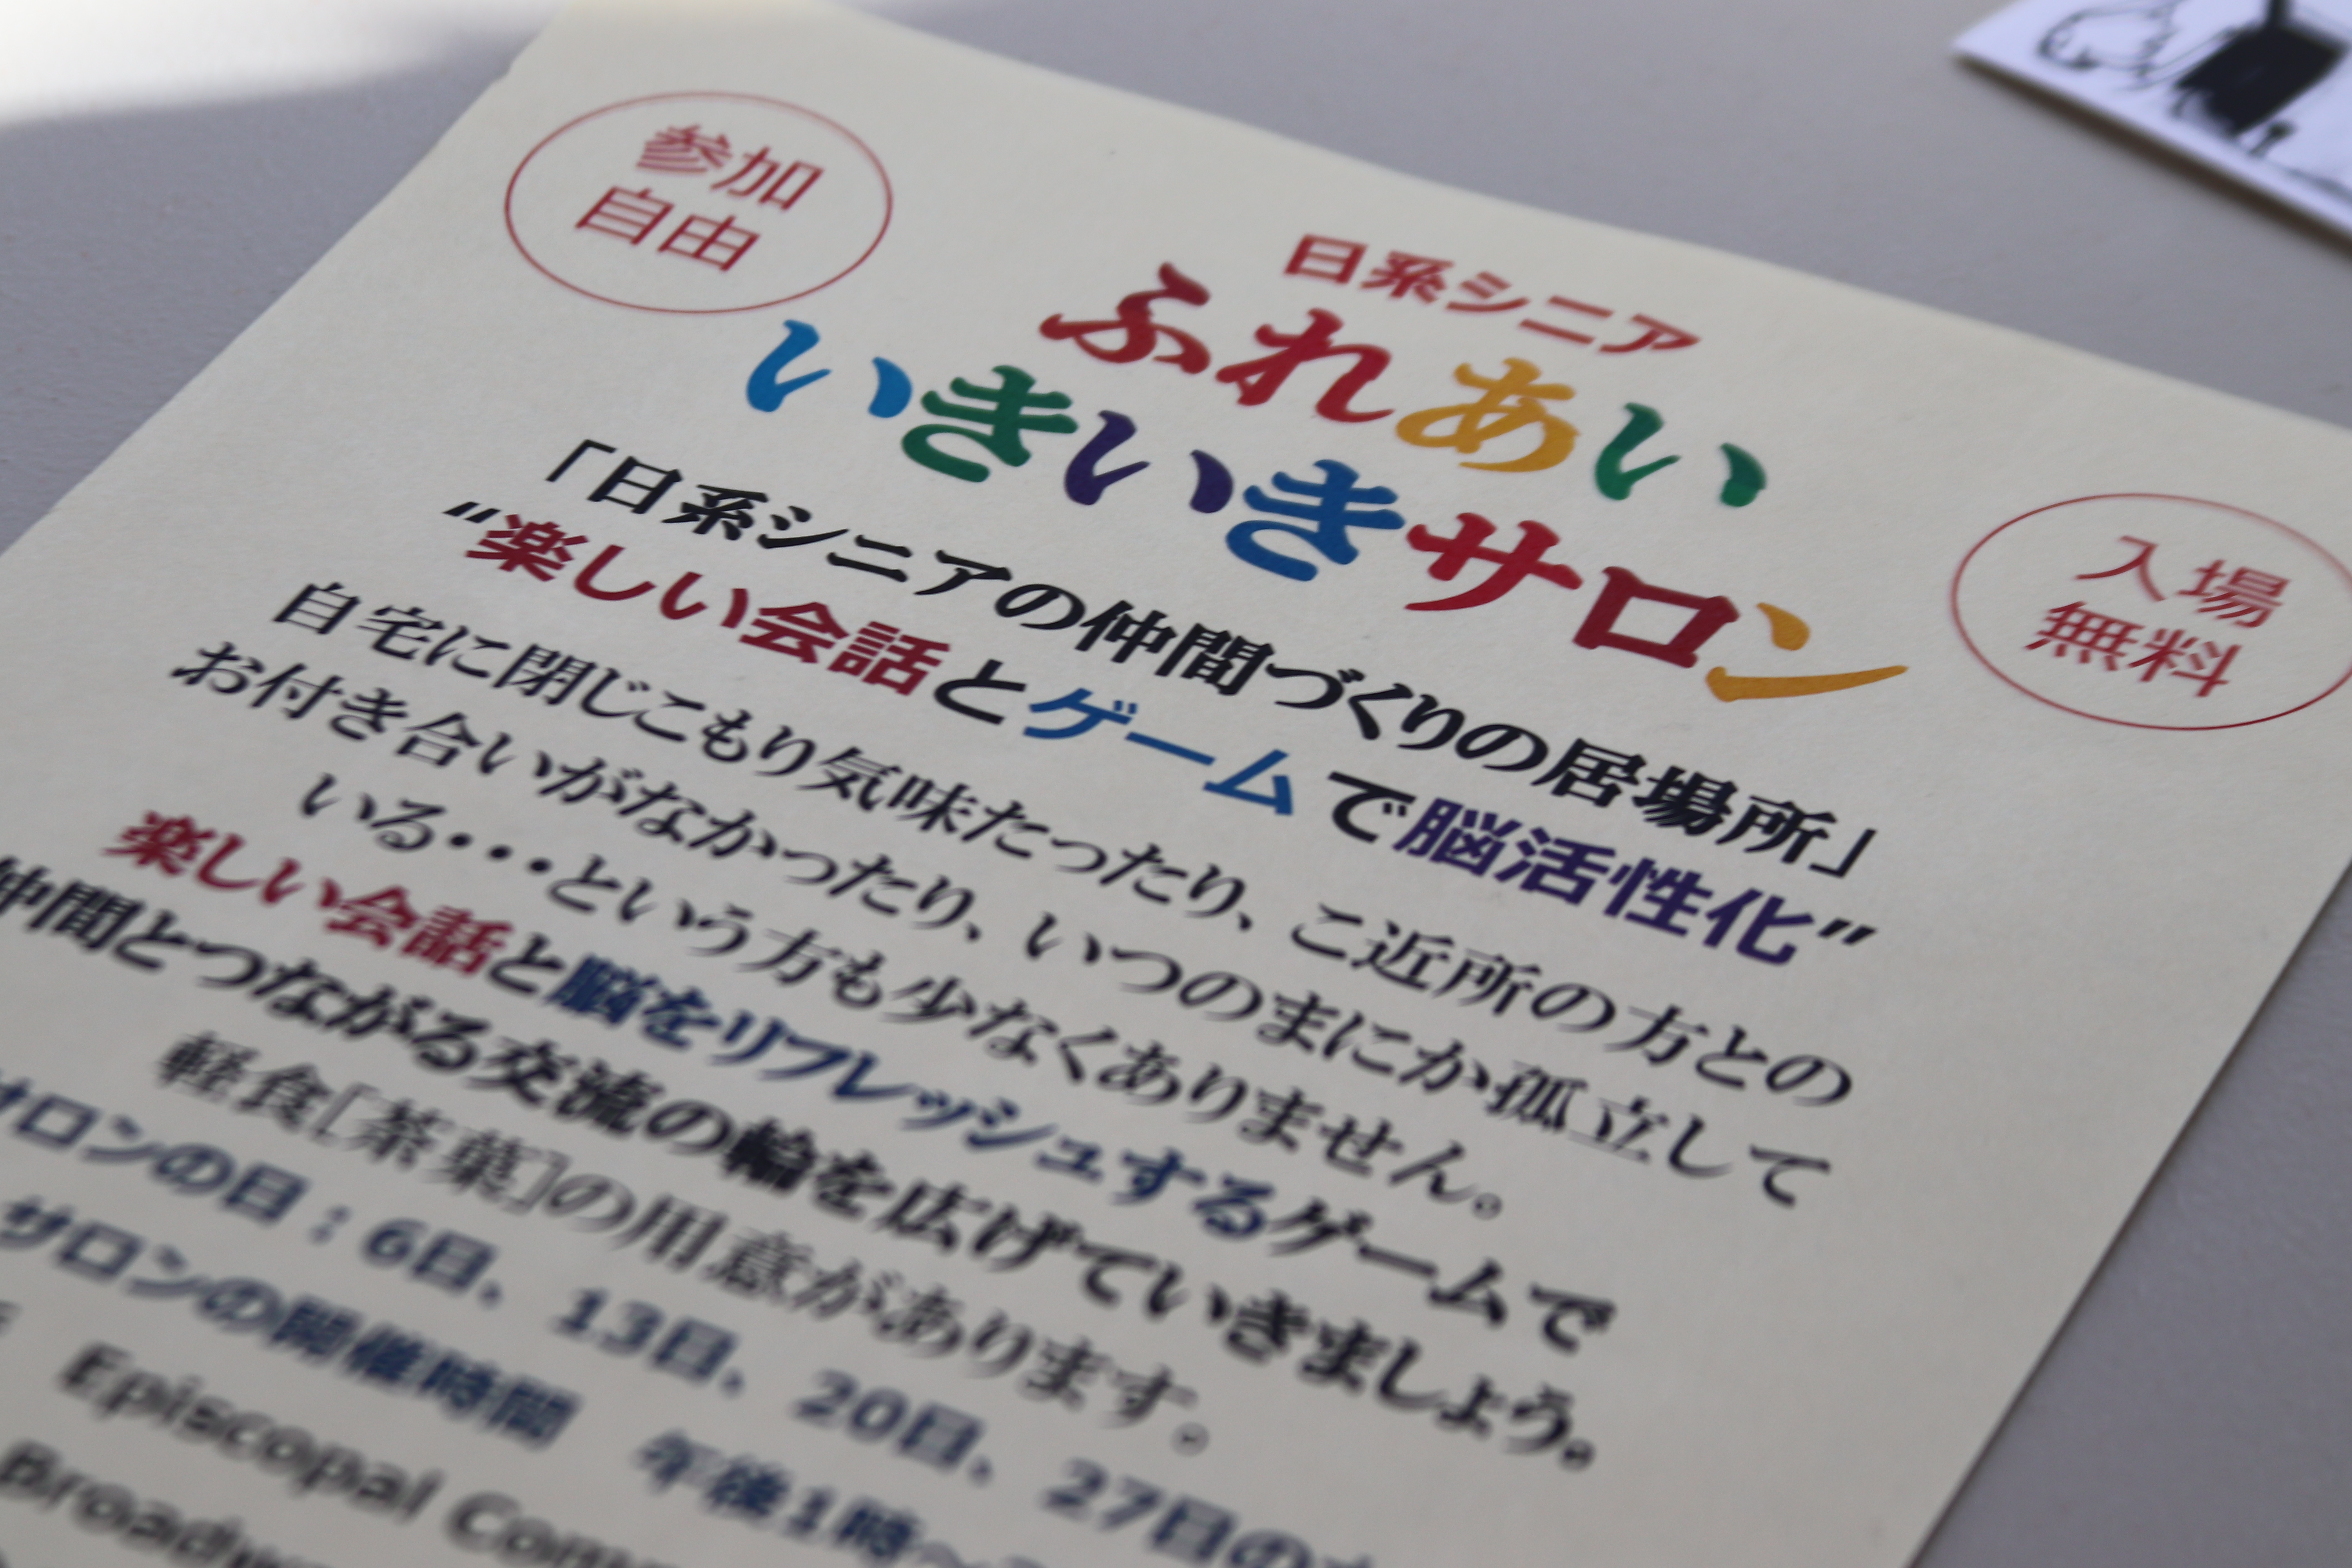 参加
自由
日系シニア
ふれあい
いきいきサロン
入場
無料
「日系シニアの仲間づくりの居場所」
“楽しい会話とゲームで脳活性化”
自宅に閉じこもり気味たったり、ご近所の方との
お付き合いがなかったり、いつのまにか孤立して
いる・・・という方も少なくありません。
楽しい会話と脳をリフレッシュするゲームで
仲間とつながる交流の輪を広げていきましょう。
軽食[茶菓]の用意があります。
サロンの日：6日、13日、20日、27日の
サロンの開催時間 午後1時～
Episcopal